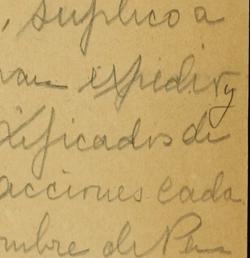 , suplico a
van expedir y
tificados de
acciones cada
ombre de Pe